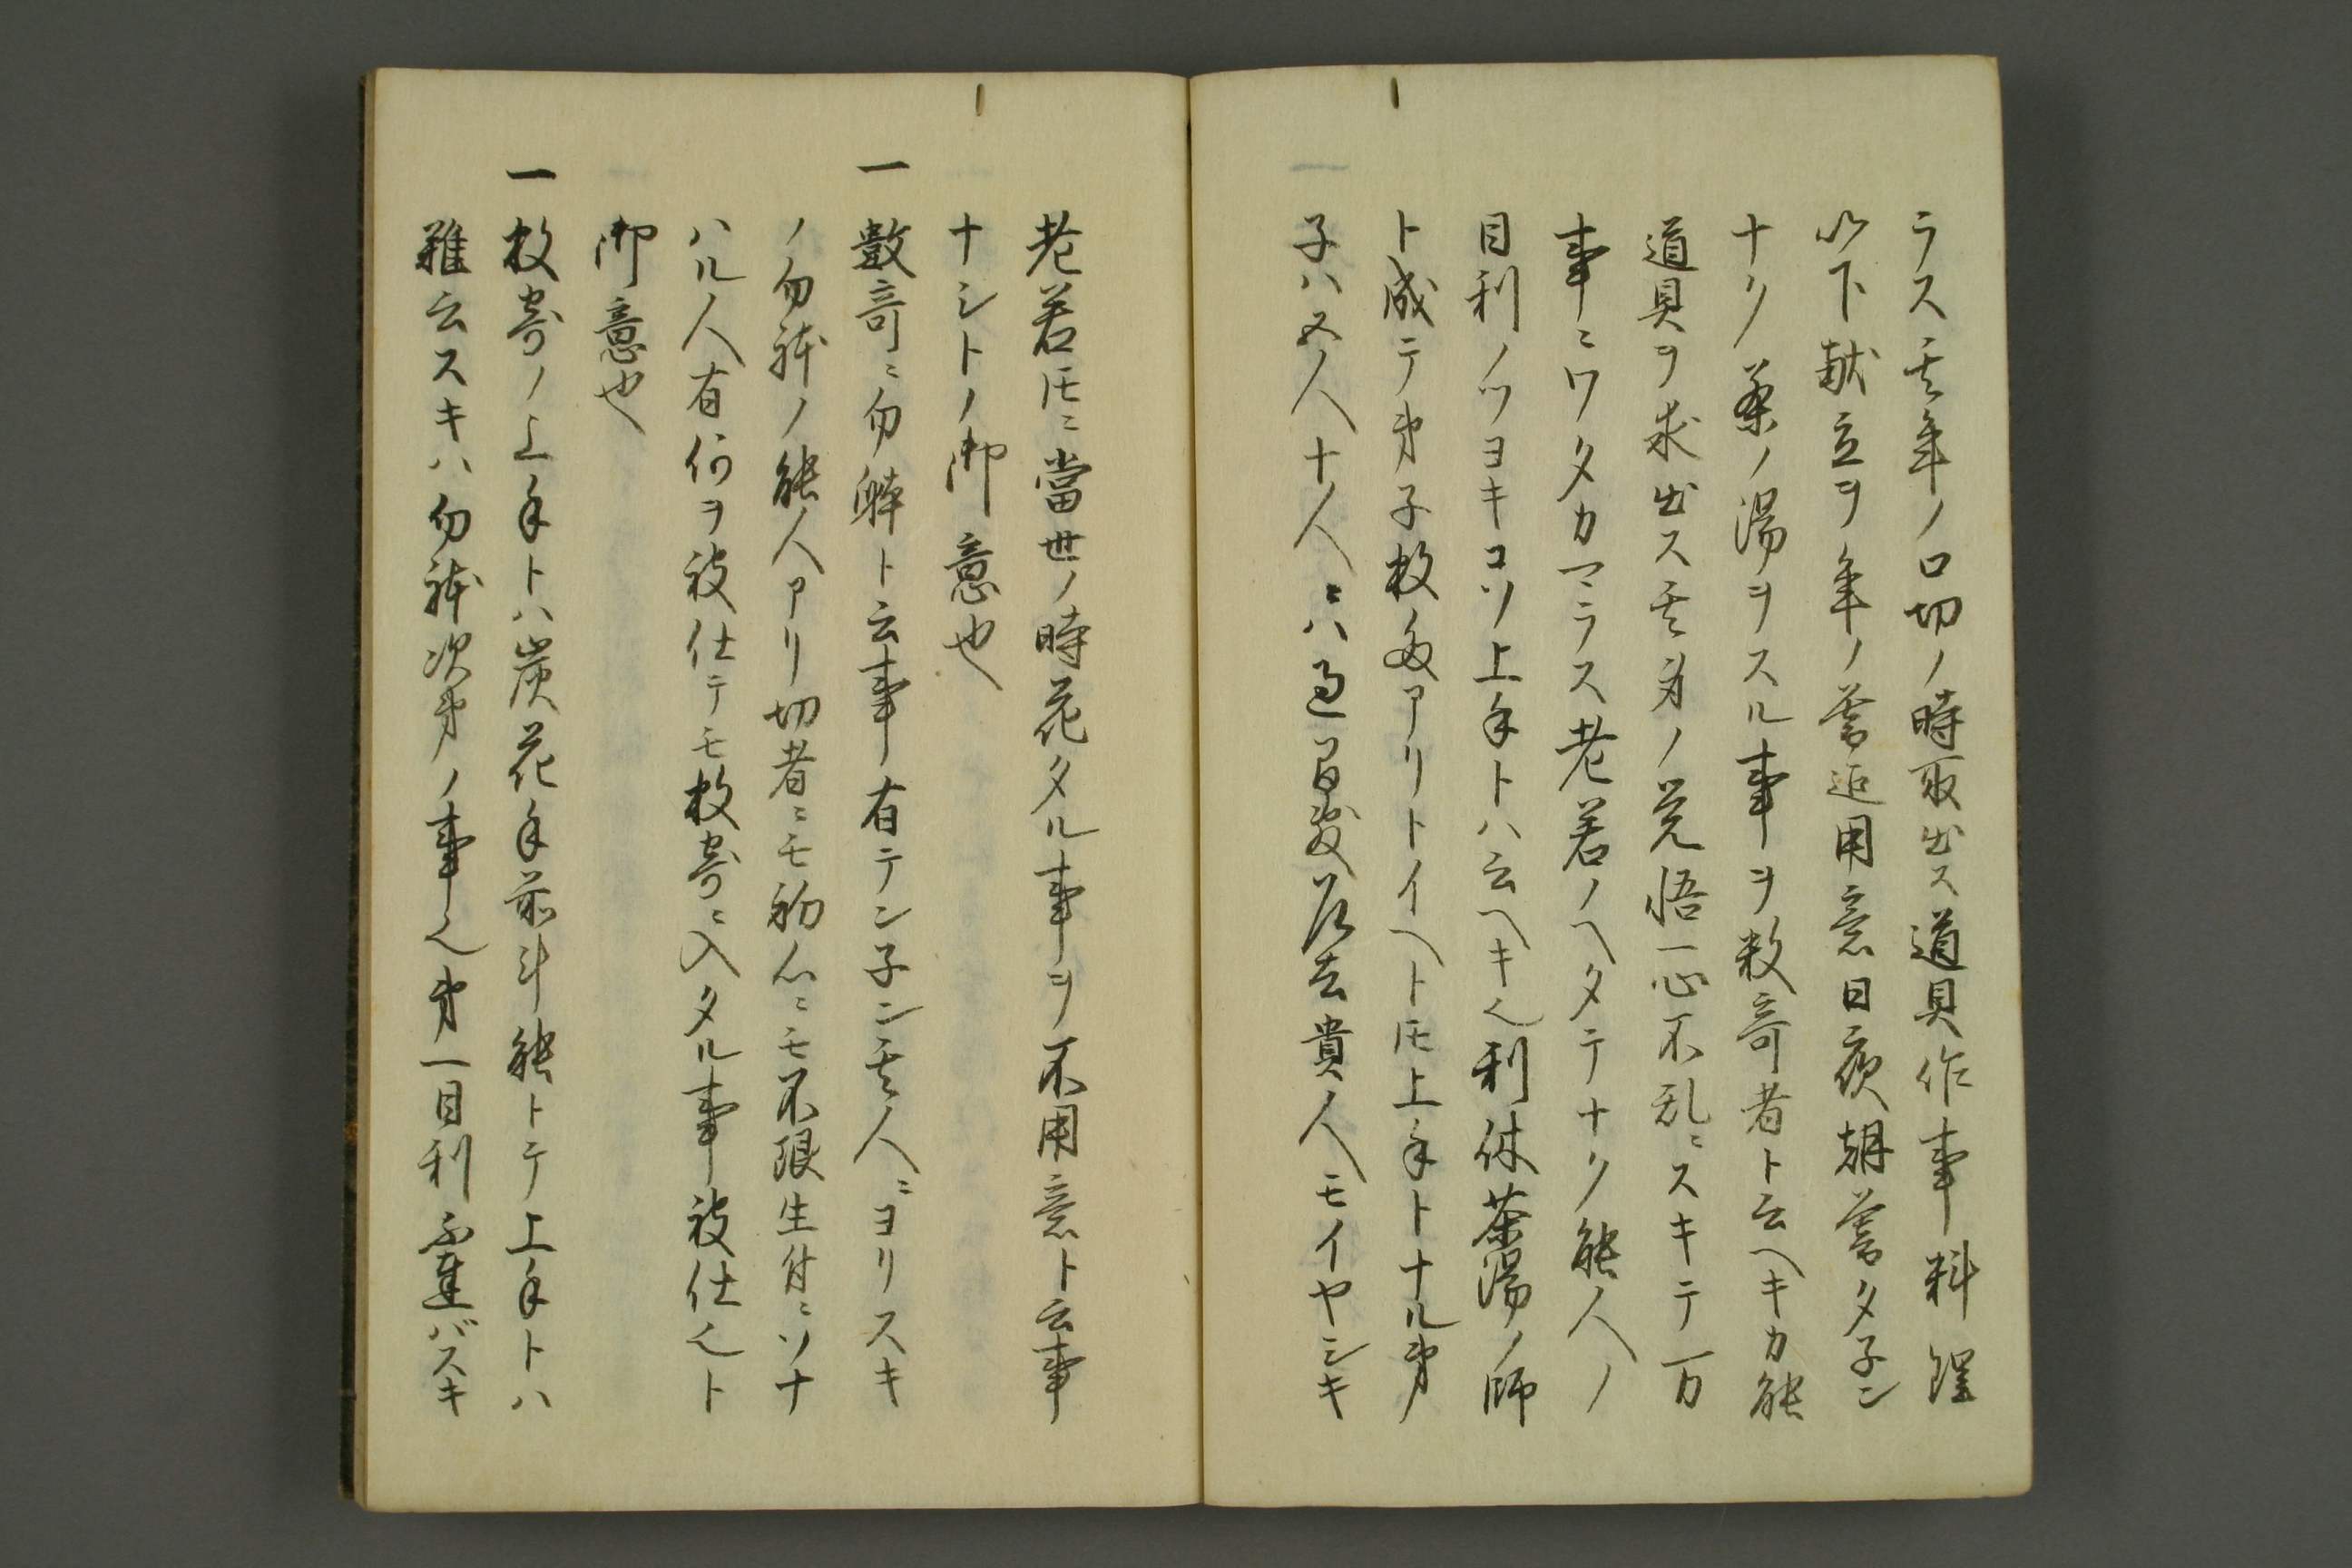 ラス其年ノ口切ノ時取出ス道具作事料理
以下献立ヲ年ノ暮迄用意日夜朝暮タ子ン
ナク茶ノ湯ヲスル事ヲ数寄者ト云ヘキカ能
道具ヲ求出ス其身ノ覚悟一心不乱ニスキテ万
事ニワタカマラス老若ノヘタテナク能人ノ
目利ノツヨキコソ上手トハ云ヘキ也利休茶湯ノ師
ト成テ弟子数多アリトイヘトモ上手トナル弟
子ハ五人十人ニハ過間敷候去貴人モイヤシキ
老若トモニ當世ノ時花タル事ヲ不用意ト云事
ナシトノ御意也
一 數奇ニ勿躰ト云事有テン子ン其人ニヨリスキ
ノ勿躰ノ能人アリ切者ニモ初心ニモ不限生付ニソナ
ハル人有何ヲ被仕テモ数寄ニ入タル事被仕也ト
御意也
一 数寄ノ上手トハ炭花手前斗能トテ上手トハ
難云スキハ勿躰次第ノ事也第一目利不達バスキ